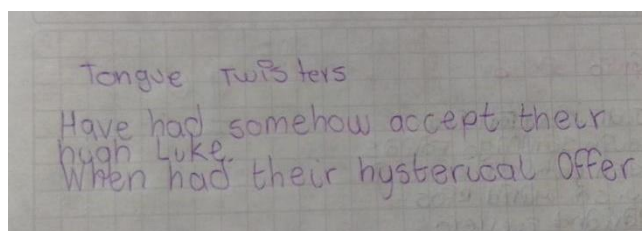 Tongue Twisters
Have had somehow accept their
hugh Luke.
When had their hysterical Offer